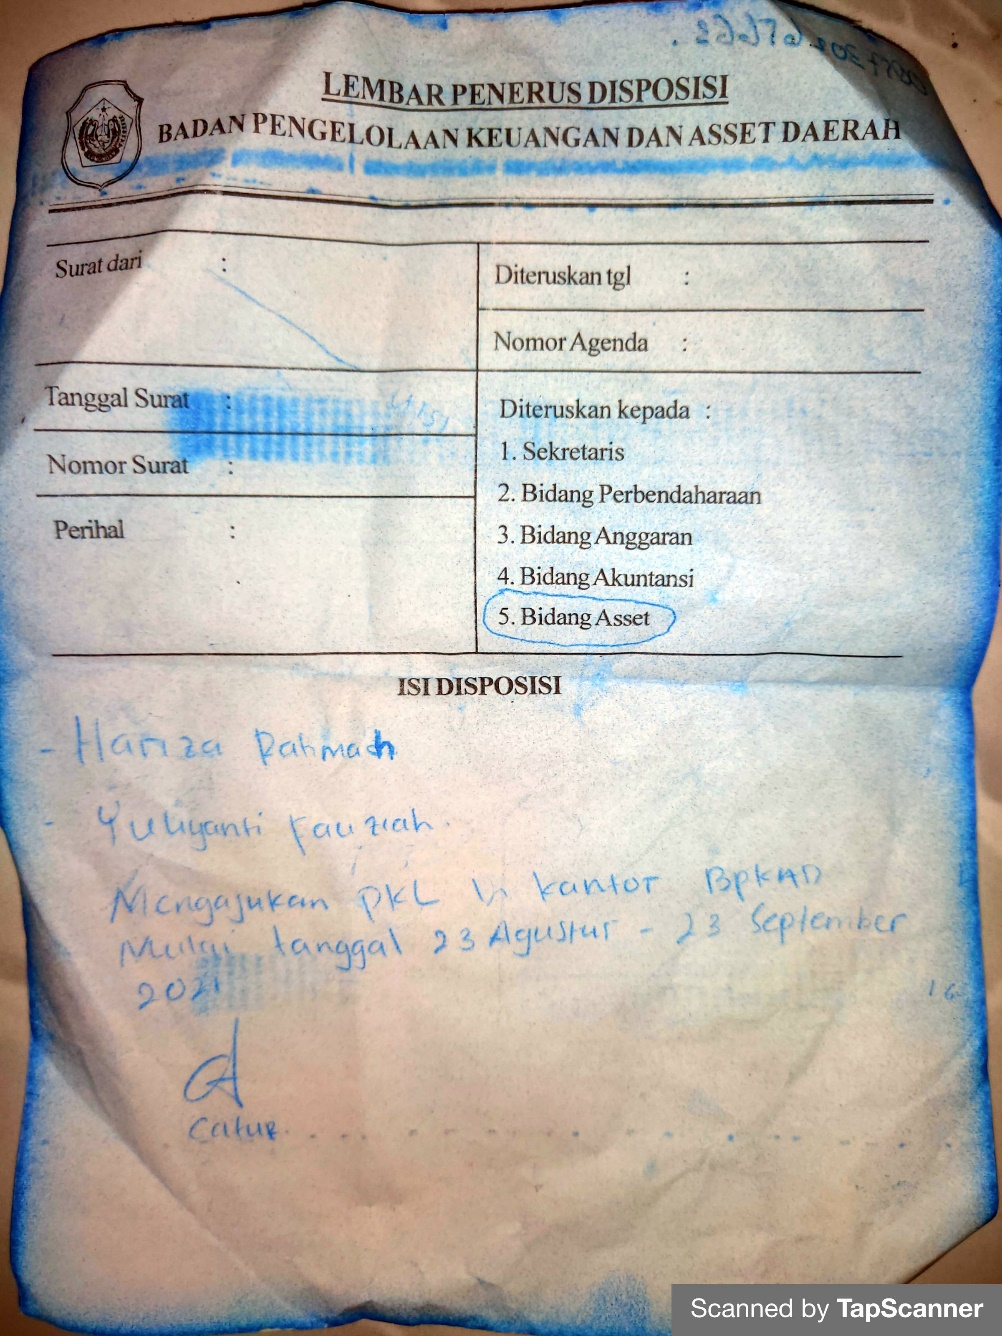 LEMBAR PENERUS DISPOSISI
BADAN PENGELOLAAN KEUANGAN DAN ASSET DAERAH
Surat dari :
Tanggal Surat :
Nomor Surat :
Perihal :
Diteruskan tgl :
Nomor Agenda :
Diteruskan kepada :
1. Sekretaris
2. Bidang Perbendaharaan
3. Bidang Anggaran
4. Bidang Akuntansi
5. Bidang Asset
ISI DISPOSISI
- Hariza Rahmah
- Yuliyanti Fauziah.
Mengajukan PKL Di kantor BPKAD
Mulai tanggal 23 Agustur - 23 September
2021
Catur
Scanned by TapScanner